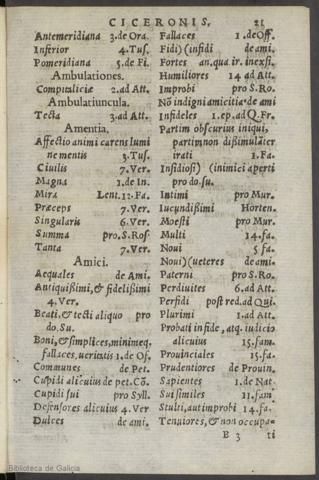 CICERONIS. 21
Antemeridiana 3.de Ora.
Inferior 4.Tus.
Pomeridiana 5.de Fi.
Ambulationes.
Compitaliciæ 2.ad Att.
Ambulatiuncula.
Tecta 3.ad Att.
Amentia.
Affectio animi carens lumi
ne mentis 3.Tus.
Ciuilis 7.Ver.
Magna 1.de In.
Mira Lent.12.Fa.
Præceps 7.Ver.
Singularis 6.Ver.
Summa pro.S.Ros.
Tanta 7.Ver.
Amici.
Aequales de Ami.
Antiquißimi, & fidelißimi
4.Ver.
Beati, & tecti aliquo pro
do.Su.
Boni, & simplices, minimeq.
fallaces, ueritatis 1.de Of.
Communes de Pet.
Cupidi alicuius de pet.Cō.
Cupidi sui pro Syll.
Defensores alicuius 4.Ver
Dulces de ami.
Fallaces 1.de Off.
Fidi) (infidi de ami.
Fortes an.qua ir. inexsi.
Humiliores 14 ad Att.
Improbi pro S.Ro.
Nō indigni amicitia de ami
Infideles 1.ep.ad Q.Fr.
Partim obscurius iniqui,
partim non dißimulāter
irati 1.Fa.
Insidiosi) (inimici aperti
pro do.su.
Intimi pro Mur.
Iucundißimi Horten.
Moesti pro Mur.
Multi 14.fa.
Noui 5 fa.
Noui) (ueteres de ami.
Paterni pro S.Ro.
Perdiuites 6.ad Att.
Perfidi post red.ad Qui.
Plurimi 1.ad Att.
Probati in fide, atq. iudicio
alicuius 15.fam.
Prouinciales 15.fa.
Prudentiores de Prouin.
Sapientes 1.de Nat.
Sui similes 11.fam.
Stulti, aut improbi 14.fa.
Tenuiores, & non occupa-
B 3 ti
Biblioteca de Galicia